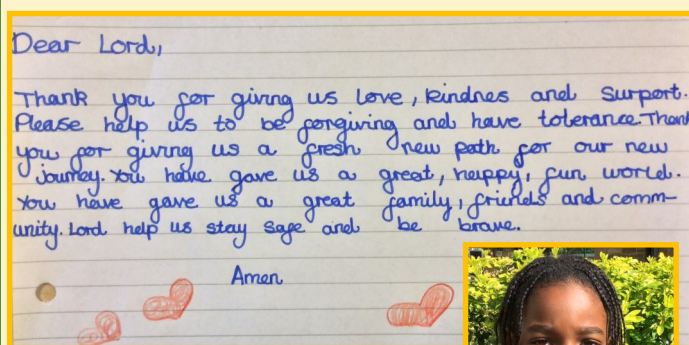 Dear Lord,
Thank you for giving us love, kindnes and surport.
Please help us to be forgiving and have tolerance. Thank
you for giving us a fresh new path for our new
journey. You have gave us a great, happy, fun world.
You have gave us a great family, friends and comm-
unity. Lord help us stay safe and be brave.
Amen